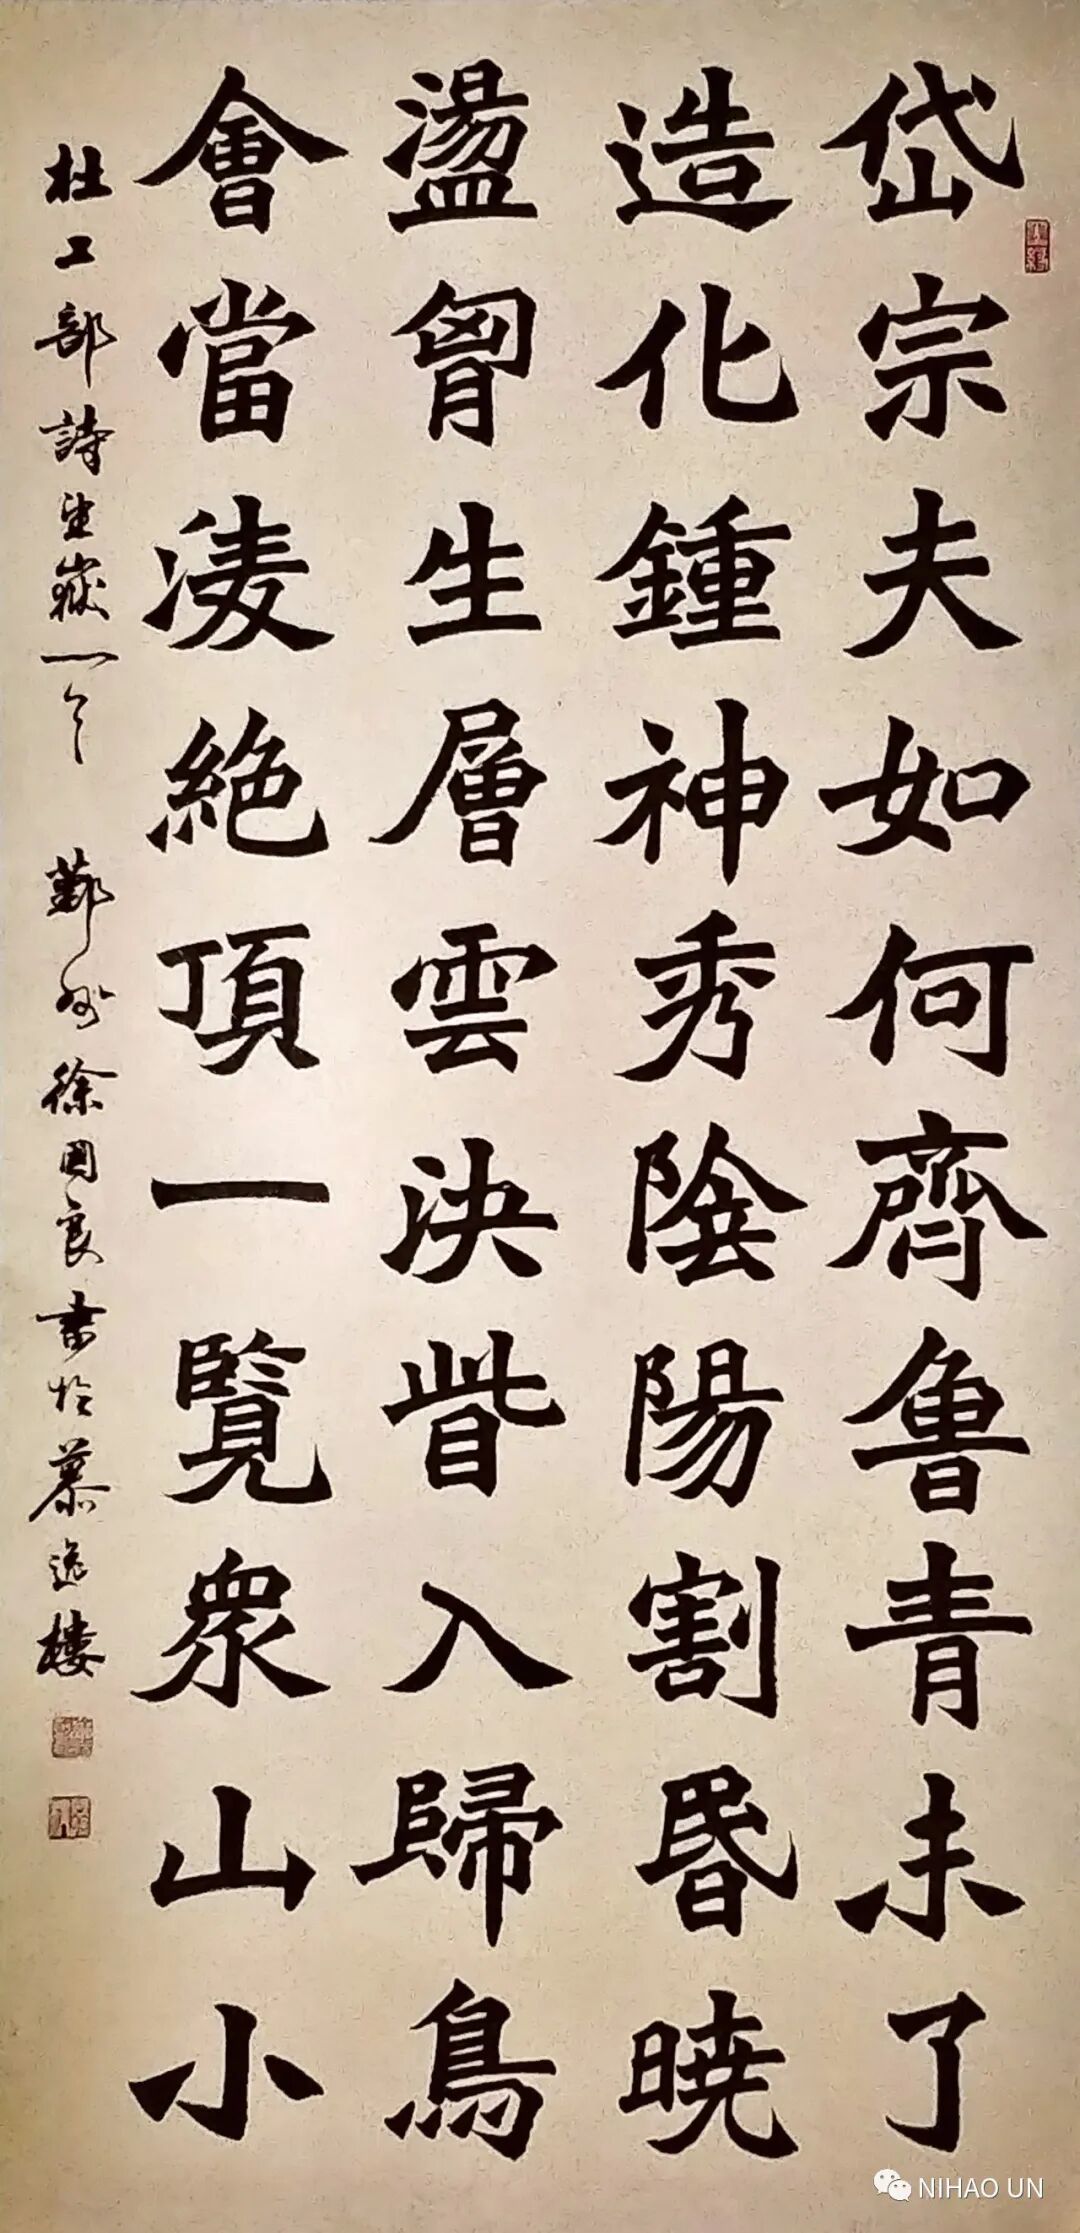 岱宗夫如何齊魯青未了
造化鍾神秀陰陽割昏曉
盪胷生層雲決眥入歸鳥
會當凌絕頂一覽衆山小
杜工部詩望嶽一首 鄞州徐國良書於慕逸樓
NIHAO UN